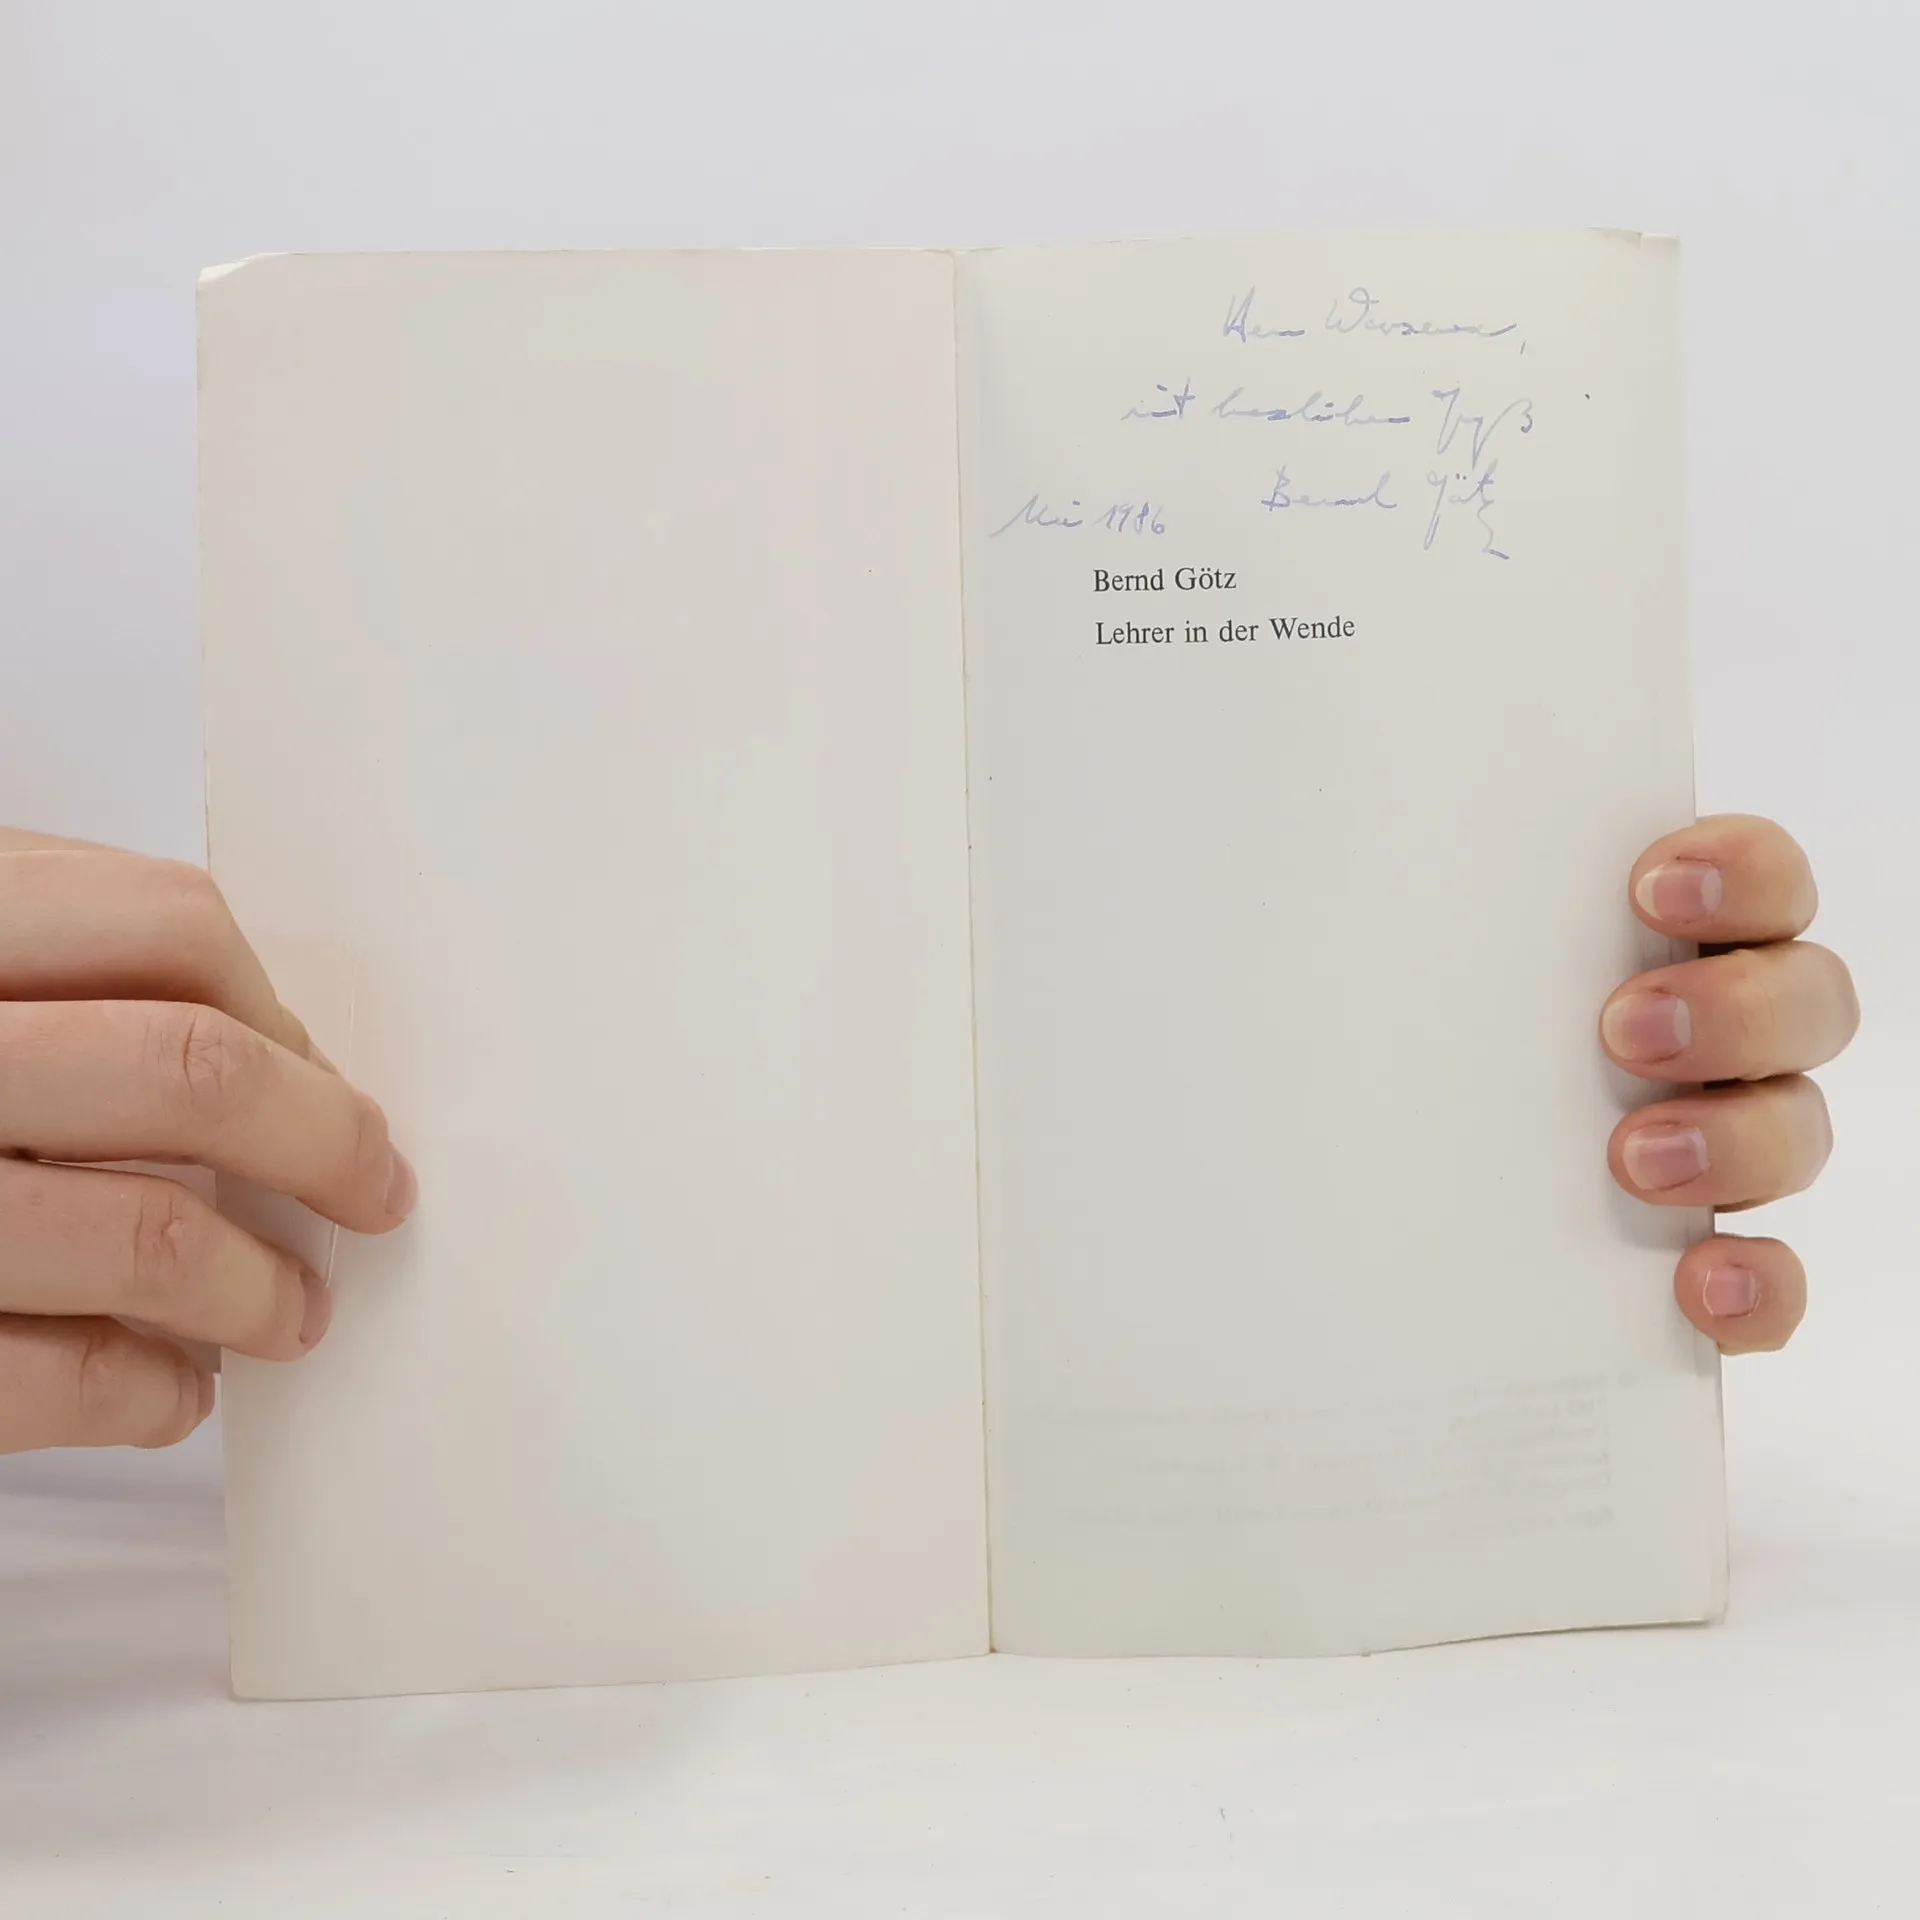 Herrn
mit herzlichem Gruß
Bernd Götz
Mai 1986
Bernd Götz
Lehrer in der Wende